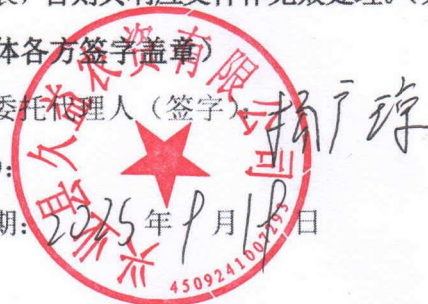 否则其响应文件作无效处理。
体各方签字盖章）
委托代理人（签字）：杨广琼
期：2025年9月18日
兴业县久益农资有限公司
4509241007293